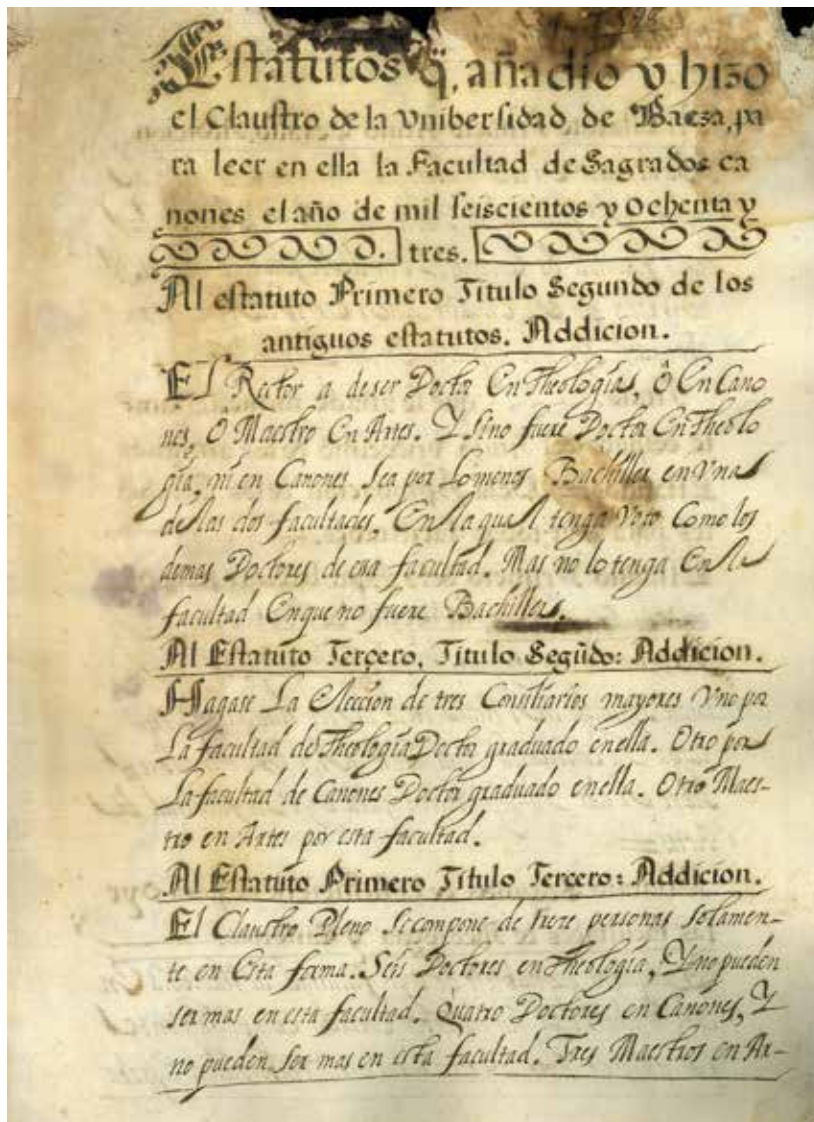 Estatutos q̃, añadio y hizo
el Claustro de la vnibersidad, de Baeza, pa
ra leer en ella la Facultad de Sagrados ca
nones el año de mil seiscientos y ochenta y
tres.
Al estatuto Primero Titulo Segundo de los
antiguos estatutos. Addicion.
El Rector a deser Doctor En Theologia, ô En Cano
nes, O Maestro En Artes. Y Sino fuere Doctor En Theolo
gia, ni en Canones Sea por Lomenos Bachiller en Vna
delas dos facultades, En la qual tenga Voto Como los
demas Doctores de esa facultad. Mas no lo tenga En la
facultad Enque no fuere Bachiller.
Al Estatuto Terçero, Titulo Segũdo: Addicion.
Hagase La Eleccion de tres Consiliarios mayores Vno por
La facultad de Theologia Doctor graduado enella. Otro por
La facultad de Canones Doctor graduado enella. Otro Maes-
tro en Artes por esta facultad.
Al Estatuto Primero Titulo Tercero: Addicion.
El Claustro Pleno Se compone de trece personas Solamen-
te en Esta forma. Seis Doctores en Theologia, Y no pueden
ser mas en esta facultad. Quatro Doctores en Canones, Y
no pueden Ser mas en esta facultad. Tres Maestros en Ar-